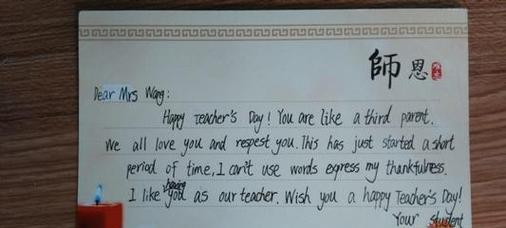 師恩
Dear Mrs Wang:
Happy Teacher's Day! You are like a third parent.
We all love you and respest you. This has just started a short
period of time, I can't use words express my thankfulness.
I like you having as our teacher. Wish you a happy Teacher's Day!
Your student